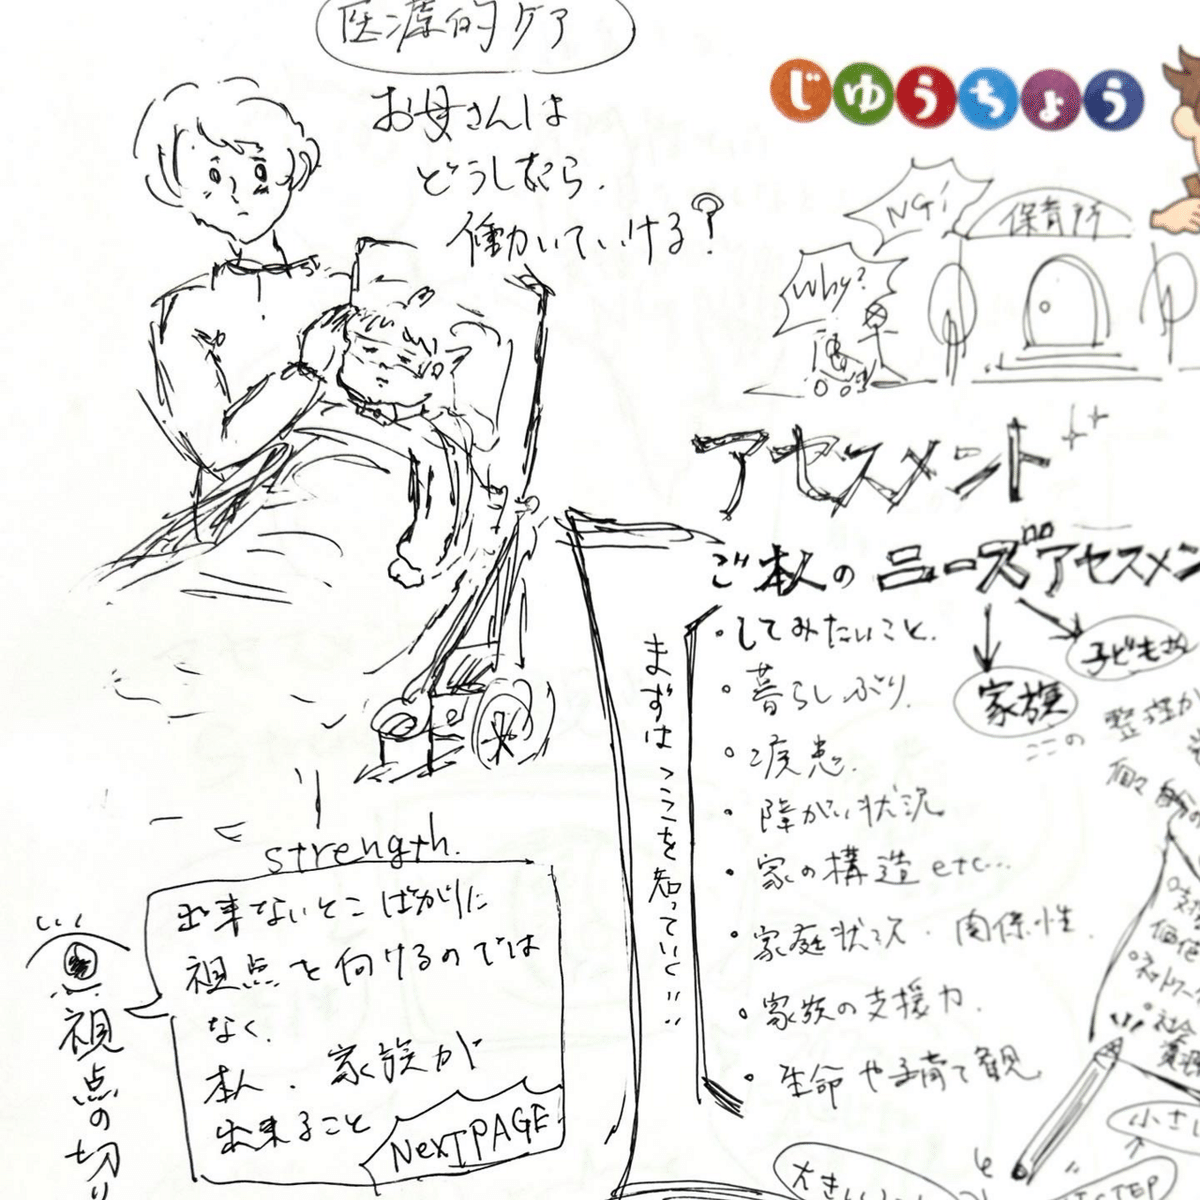 医療的ケア
お母さんは
どうしたら
働いていける？
じゅうちょう
NG！
保育所
Why?
アセスメント
ご本人の ニーズアセスメン
・してみたいこと.
・暮らしぶり.
・疾患.
・障がい状況
・家の構造 etc…
・家庭状況・関係性.
・家族の支援力.
・生命や子育て観
まずは ここを知っていく…
子ども
家族
ここの 整理が
個々
価値
・ネットワーク
・社会
資源
strength.
出来ないとこばかりに
視点を向けるのでは
なく.
本人・家族が
出来ること
NextPAGE
視点の切り
大きい
小さい
STEP